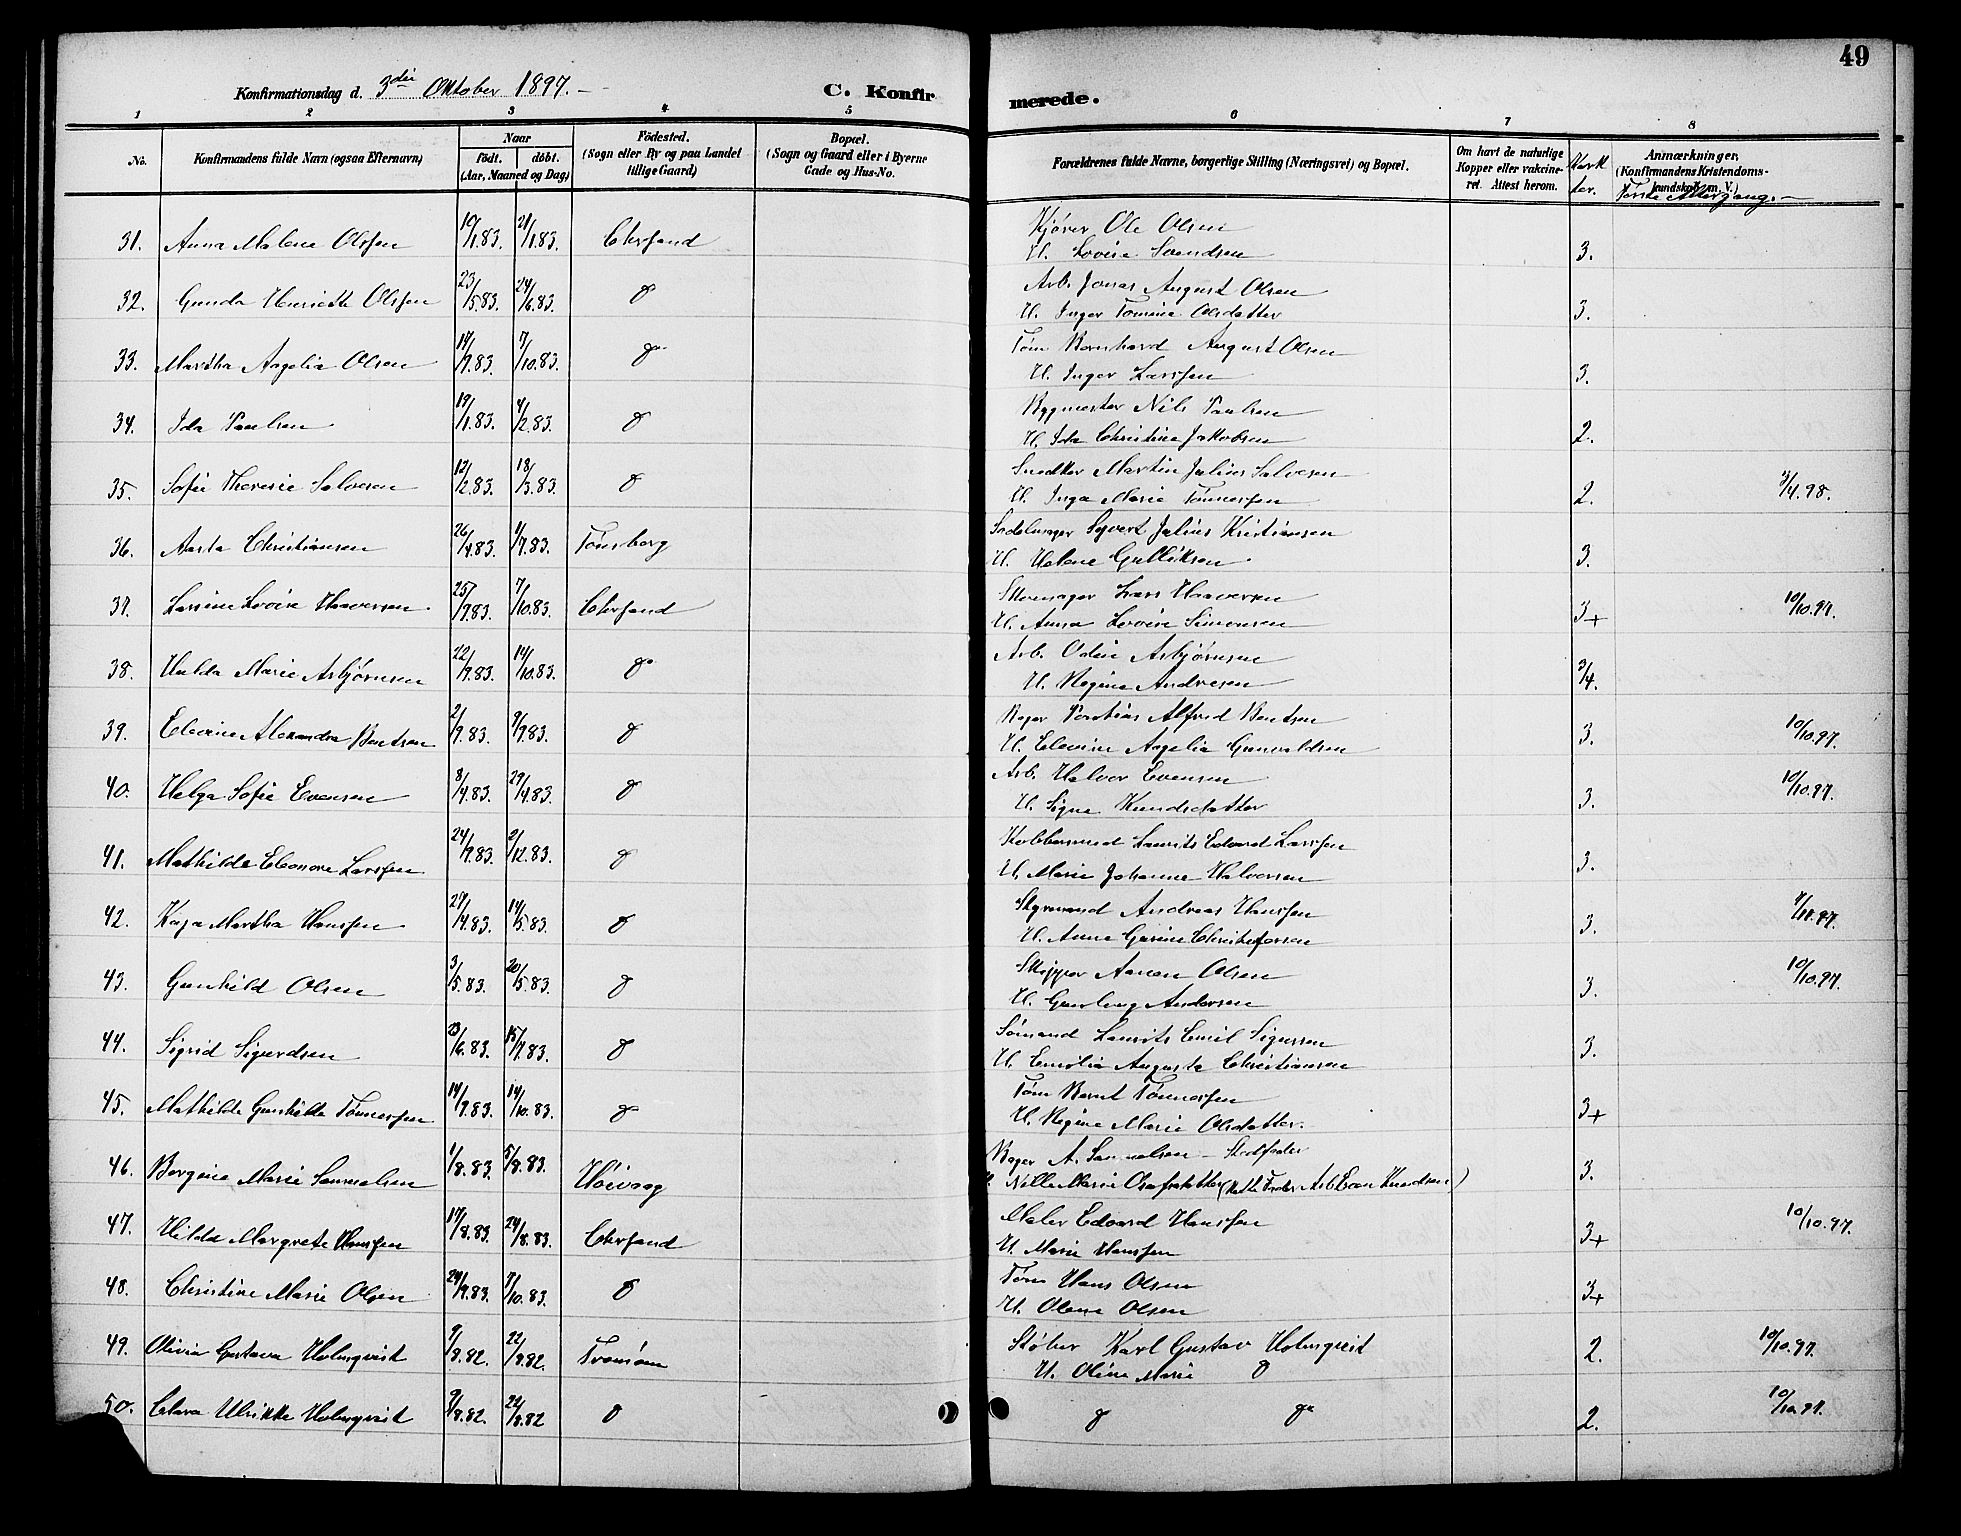 49
Konfirmationsdag d. 3die Oktober 1897.
C. Konfirmerede.
1 2 3 4 5 6 7 8
No.
Konfirmandens fulde Navn (ogsaa Efternavn)
Naar
födt. döbt.
(Aar, Maaned og Dag)
Födested.
(Sogn eller By og paa Landet tillige Gaard)
Bopæl.
(Sogn og Gaard eller i Byerne Gade og Hus-No.
Forældrenes fulde Navne, borgerlige Stilling (Næringsvei) og Bopæl.
Om havt de naturlige Kopper eller vakcineret. Attest herom.
Anmærkninger.
(Konfirmandens Kristendomskundskab m. V.)
Første Altergang.
31. Anna Malene Olsen 19/1.83. 21/1.83. Chrsand Kjører Ole Olsen
H. Lovise Svendsen 3.
32. Gunda Henriette Olsen 23/5.83. 24/6.83. Arb. Jonas August Olsen
H. Inger Tomine Olsdatter 3.
33. Martha Angelia Olsen 14/9.83. 7/10.83. Tøm Bernhard August Olsen
H. Inger Larssen 3.
34. Ida Paulsen 19/1.83. 4/2.83. Bygmester Nils Paulsen
H. Ida Christine Jakobsen 2.
35. Sofie Theresie Salvesen 12/2.83. 18/3.83. Snedker Martin Julius Salvesen
H. Inga Marie Tønnessen 2. 3/4.98.
36. Aasta Christiansen 26/4.83. 1/7.83. Tønsberg Sadelmager Syvert Julius Kristiansen
H. Helene Gulliksen 3.
37. Lassine Lovise Haaversen 25/7.83. 7/10.83. Chrsand Skomager Lars Haaversen
H. Anna Lovise Simonsen 3+ 10/10.97.
38. Hulda Marie Asbjørnsen 22/9.83. 14/10.83. Arb. Odin Asbjørnsen
H. Regine Andresen 3/4.
39. Elevine Alexandra Bentsen 2/9.83. 9/9.83. Bager Alfred Bentsen
H. Elevine Angelia Gunvaldsen 3. 10/10.97.
40. Helga Sofie Evensen 8/4.83. 29/4.83. Arb. Halvor Evensen
H. Signe Knudsdatter 3. 10/10.97.
41. Mathilde Eleonore Larssen 24/9.83. 2/12.83. Kobbersmed Laurits Edvard Larssen
H. Marie Johanne Halvorsen 3.
42. Kaja Martha Hanssen 29/4.83. 14/5.83. Styrmand Andreas Hanssen
H. Anne Gurine Christofersen 3. 7/11.97.
43. Gunhild Olsen 3/5.83. 20/5.83. Skipper Aanen Olsen
H. Gunborg Andersen 3. 10/10.97.
44. Sigrid Sigurdsen 23/6.83. 15/7.83. Sømand Laurits Emil Sigurssen
H. Emilia Augusta Christiansen 3.
45. Mathilde Gunhilda Tønnessen 14/9.83. 14/10.83. Tøm Bernt Tønnessen
H. Regine Marie Olsdatter 3+
46. Bergine Marie Samuelsen 1/8.83. 5/8.83. Høivaag Bager A. Samuelsen – Stedfader
H. Nille Marie 3.
47. Hilda Margrete Hanssen 17/8.83. 24/8.83. Chrsand Maler Edvard Hanssen
H. Marie Hanssen 3+ 10/10.97.
48. Christine Marie Olsen 24/9.83. 7/10.83. Tøm Hans Olsen
H. Olene Olsen 3+
49. Olivia Gustava Holmqvist 9/8.82. 22/8.82. Tromsøen Støber Karl Gustav Holmqvist
H. Oline Marie 2. 10/10.97.
50. Clara Ulrikke Holmqvist 9/8.82. 22/8.82 2. 10/10.97.